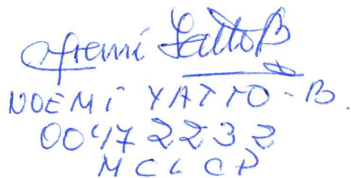 Noemí Yatto B
NOEMÍ YATTO-B.
00472232
MCLCP